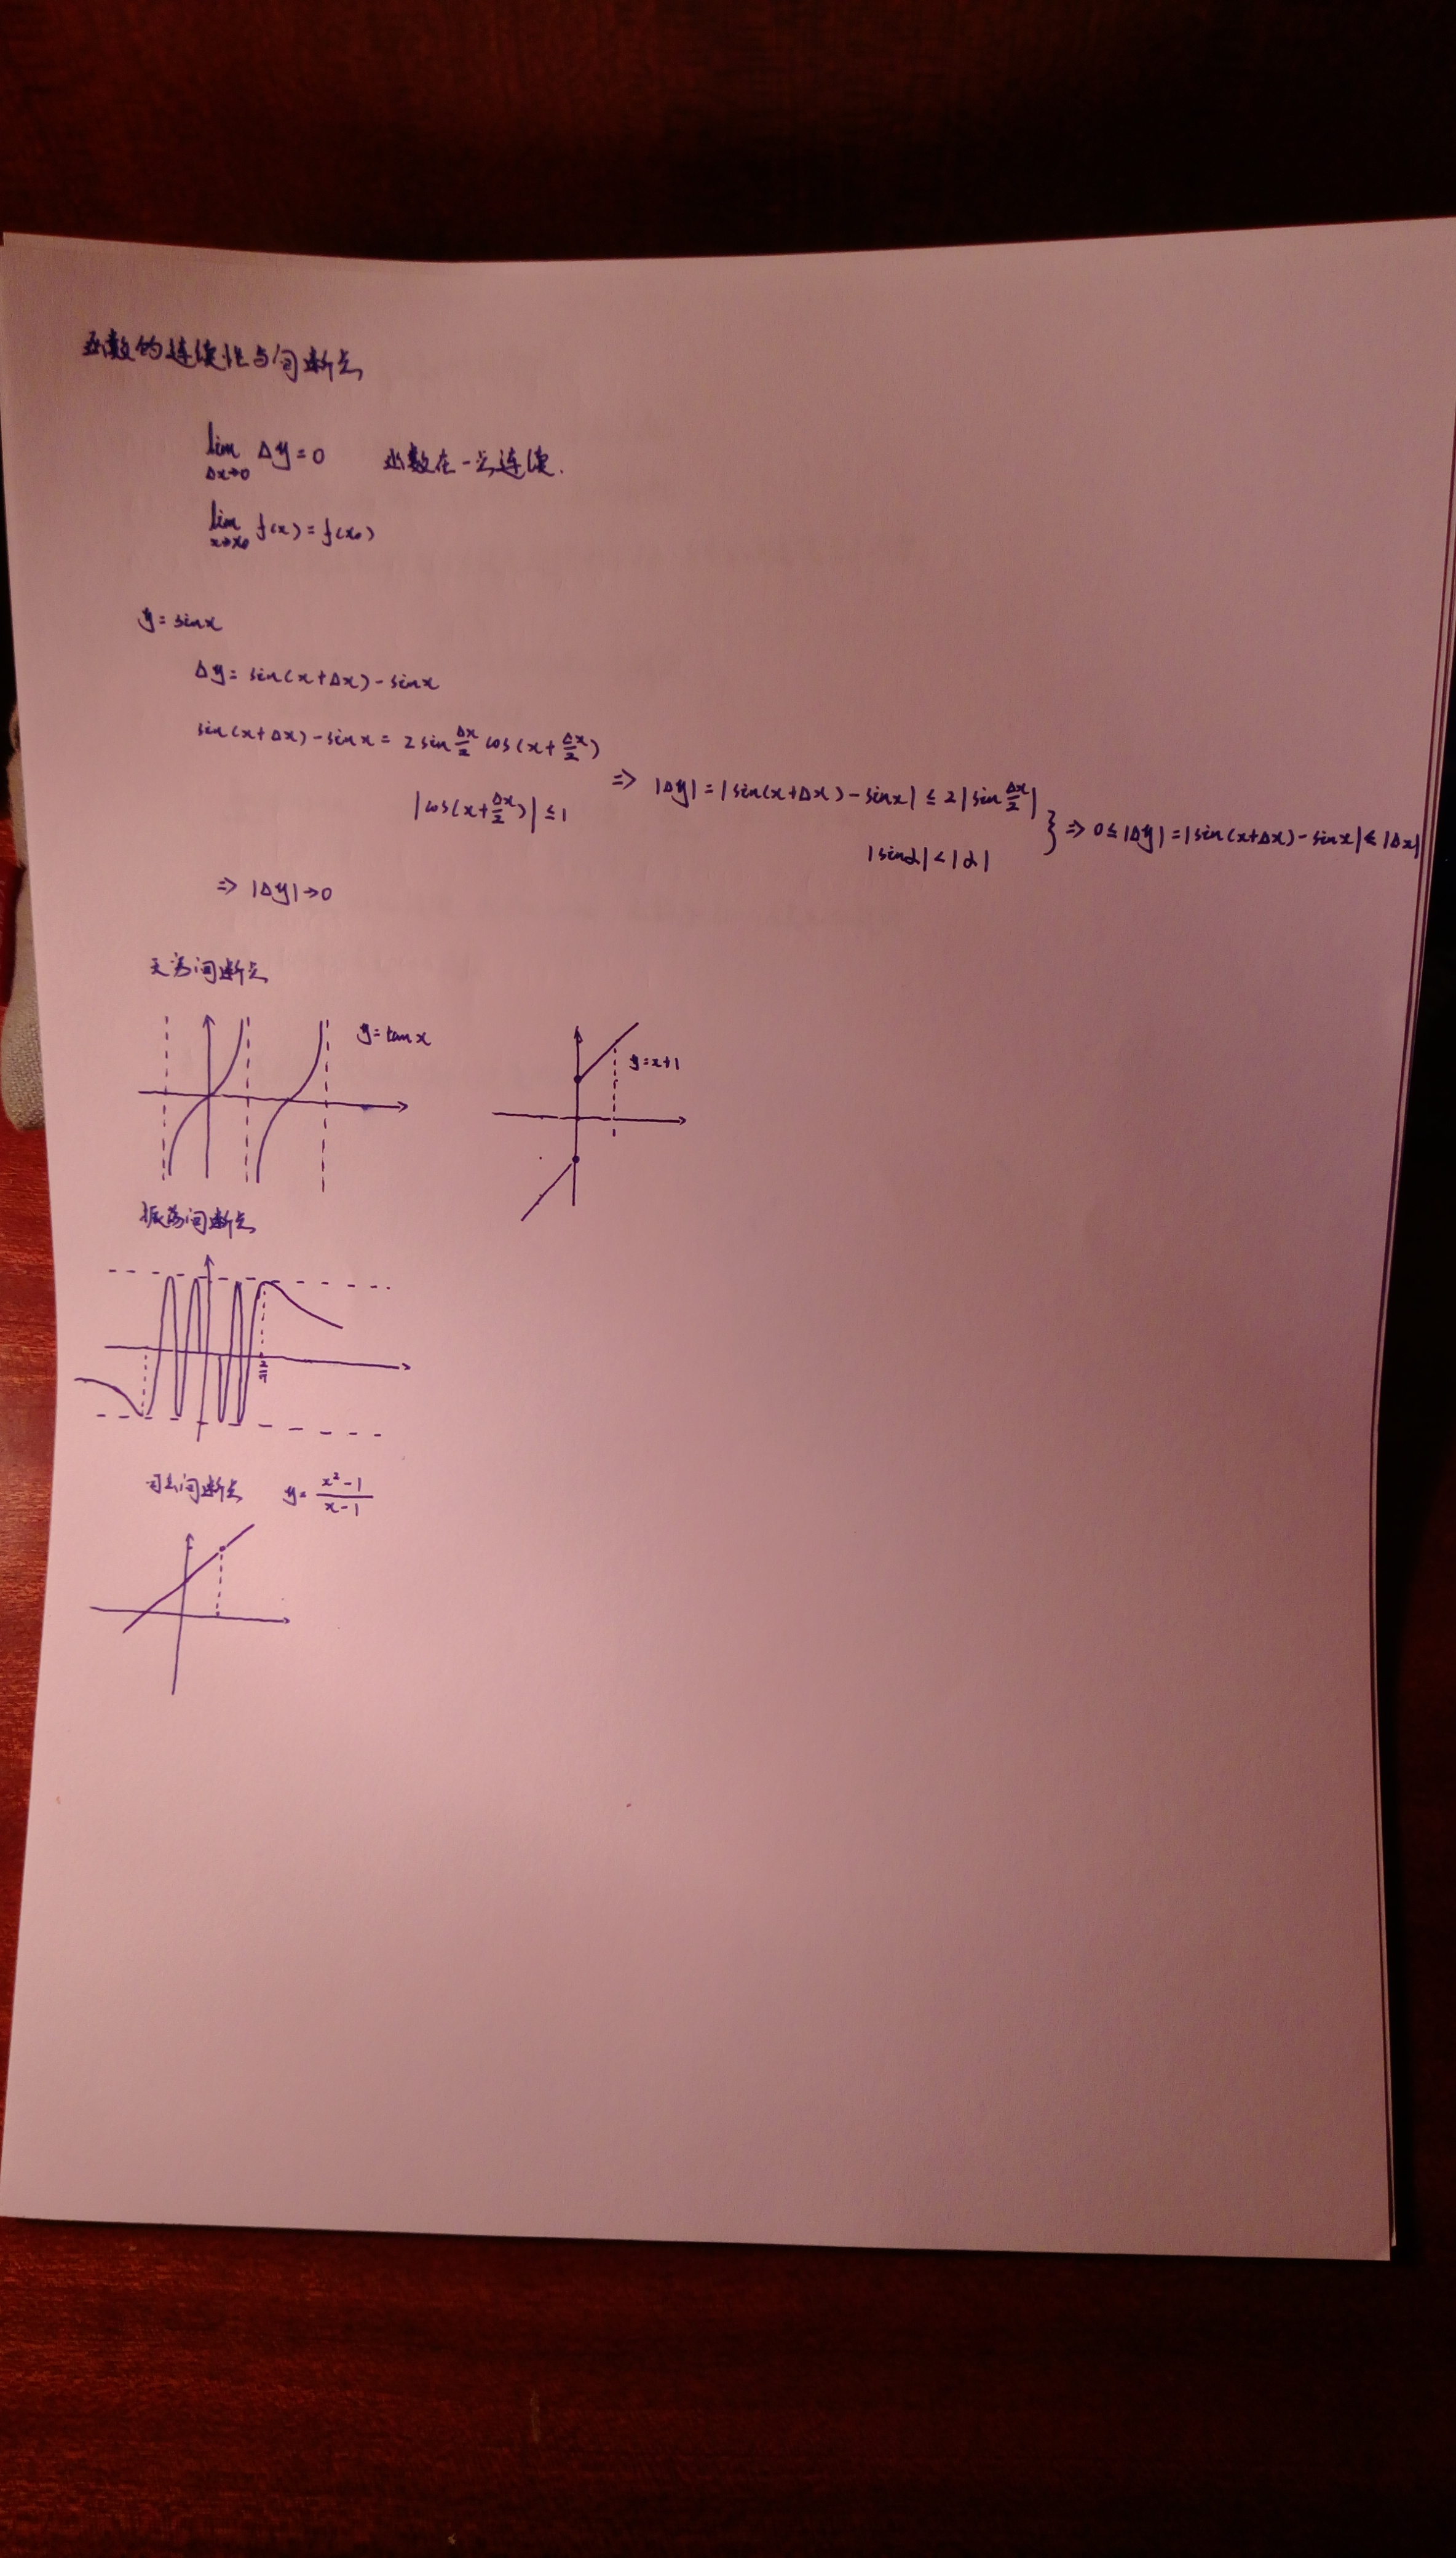 函数的连续性与间断点
lim Δy=0 函数在一点连续.
Δx→0
lim f(x)=f(x₀)
x→x₀
y=sinx
Δy=sin(x+Δx)-sinx
sin(x+Δx)-sinx=2sin Δx/2 cos(x+Δx/2)
|cos(x+Δx/2)|≤1
⇒ |Δy|=|sin(x+Δx)-sinx|≤2|sin Δx/2|
|sinα|<|α|
} ⇒ 0≤|Δy|=|sin(x+Δx)-sinx|≤|Δx|
⇒ |Δy|→0
无穷间断点
y=tanx
y=x+1
振荡间断点
2/π
可去间断点 y=(x²-1)/(x-1)